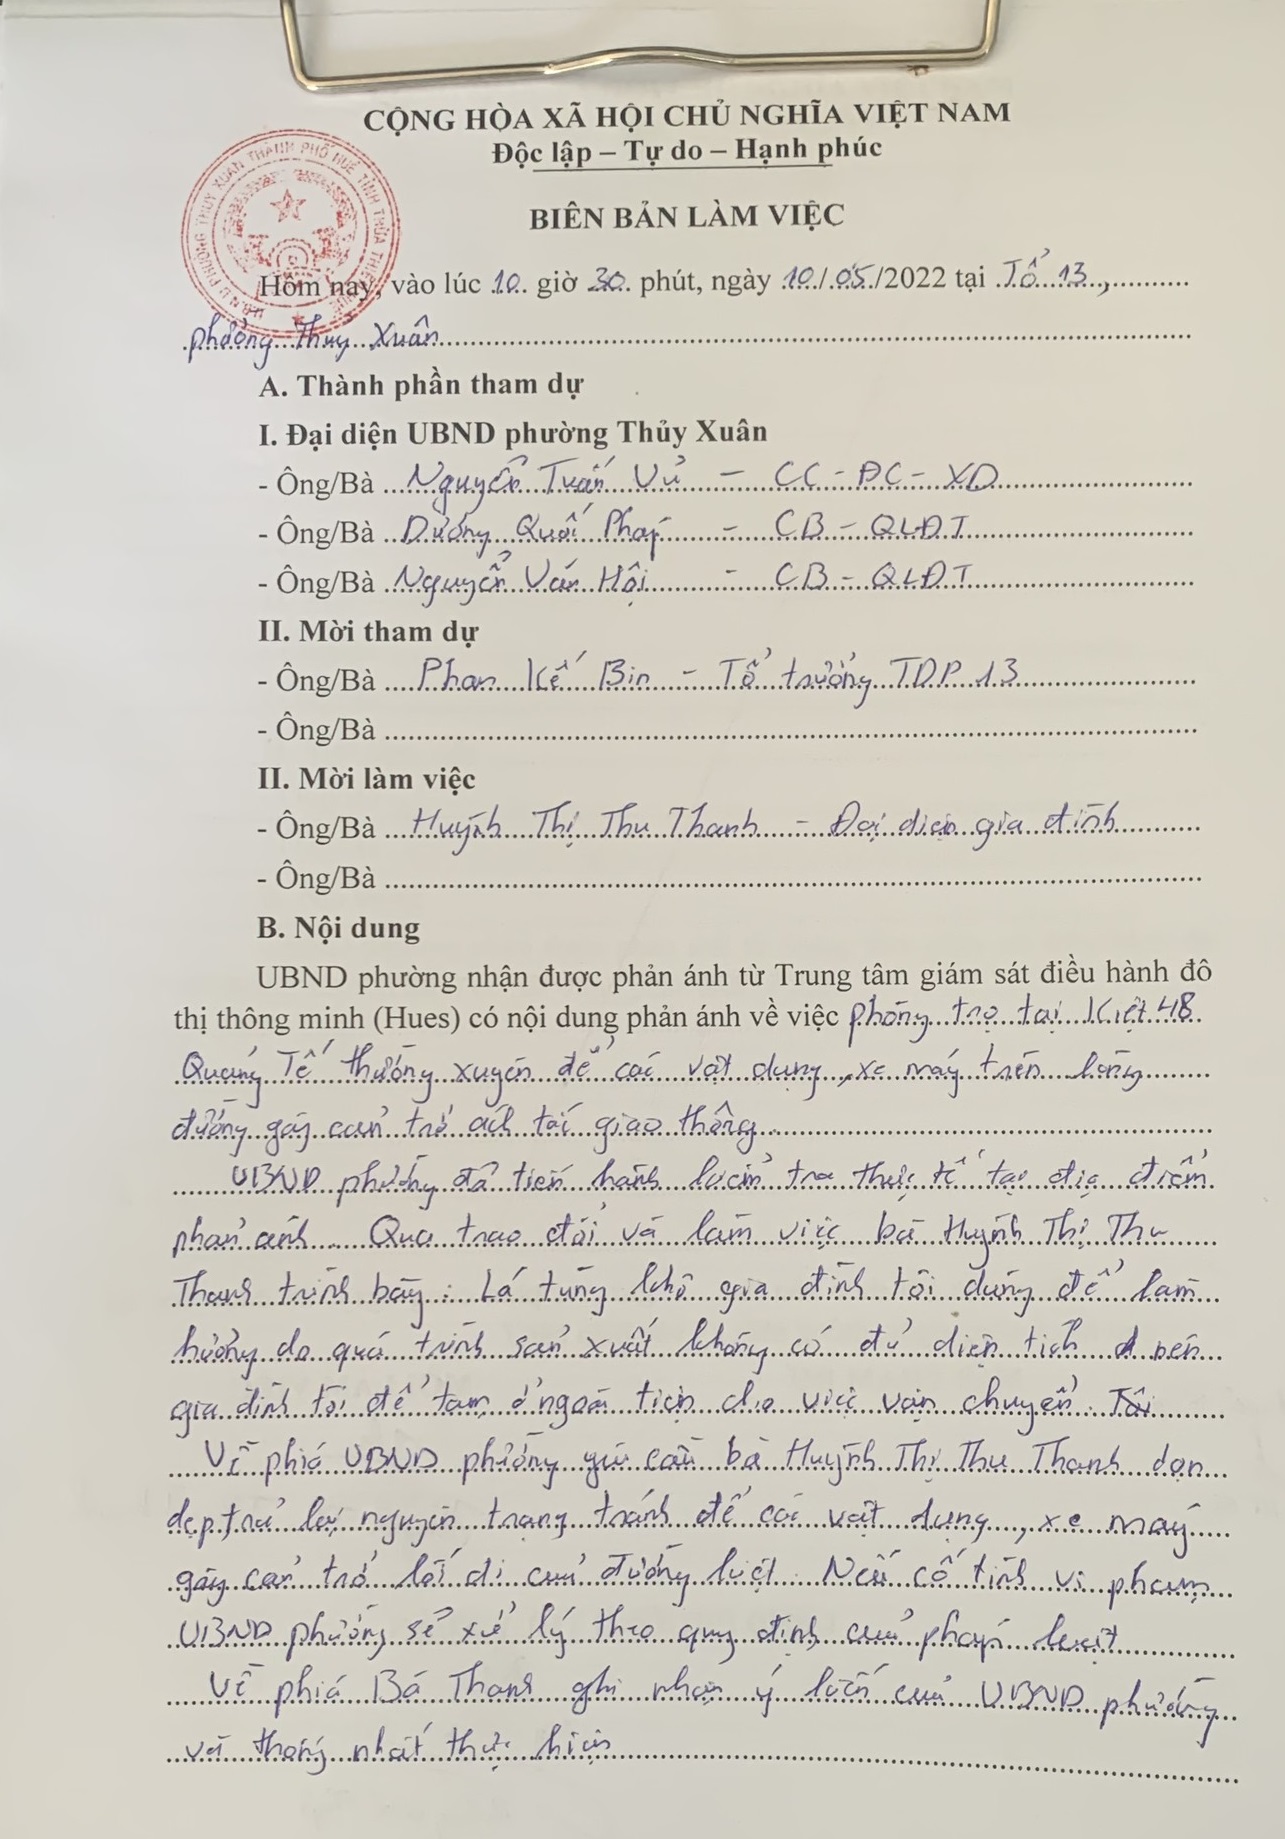 CỘNG HÒA XÃ HỘI CHỦ NGHĨA VIỆT NAM
Độc lập – Tự do – Hạnh phúc
U.B.N.D PHƯỜNG THỦY XUÂN THÀNH PHỐ HUẾ TỈNH THỪA THIÊN HUẾ
BIÊN BẢN LÀM VIỆC
Hôm nay, vào lúc 10 giờ 30 phút, ngày 10/05/2022 tại Tổ 13,
phường Thuỷ Xuân
A. Thành phần tham dự
I. Đại diện UBND phường Thủy Xuân
- Ông/Bà Nguyễn Tuấn Vũ – CC - ĐC - XD
- Ông/Bà Dương Quốc Pháp - CB - QLĐT
- Ông/Bà Nguyễn Văn Hội - CB - QLĐT
II. Mời tham dự
- Ông/Bà Phan Kế Bin - Tổ trưởng TDP 13
- Ông/Bà
II. Mời làm việc
- Ông/Bà Huỳnh Thị Thu Thanh - Đại diện gia đình
- Ông/Bà
B. Nội dung
UBND phường nhận được phản ánh từ Trung tâm giám sát điều hành đô
thị thông minh (Hues) có nội dung phản ánh về việc phòng trọ tại Kiệt 48
Quảng Tế thường xuyên để các vật dụng, xe máy trên lòng
đường gây cản trở ách tắc giao thông
UBND phường đã tiến hành kiểm tra thực tế tại địa điểm
phản ánh. Qua trao đổi và làm việc bà Huỳnh Thị Thu
Thanh trình bày: Lá tùng khô gia đình tôi dùng để làm
hương do quá trình sản xuất không có đủ diện tích nên
gia đình tôi để tạm ở ngoài tiện cho việc vận chuyển. Tôi
Về phía UBND phường yêu cầu bà Huỳnh Thị Thu Thanh dọn
dẹp, trả lại nguyên trạng tránh để các vật dụng, xe máy
gây cản trở lối đi của đường kiệt. Nếu cố tình vi phạm
UBND phường sẽ xử lý theo quy định của pháp luật
Về phía Bà Thanh ghi nhận ý kiến của UBND phường
và thống nhất thực hiện